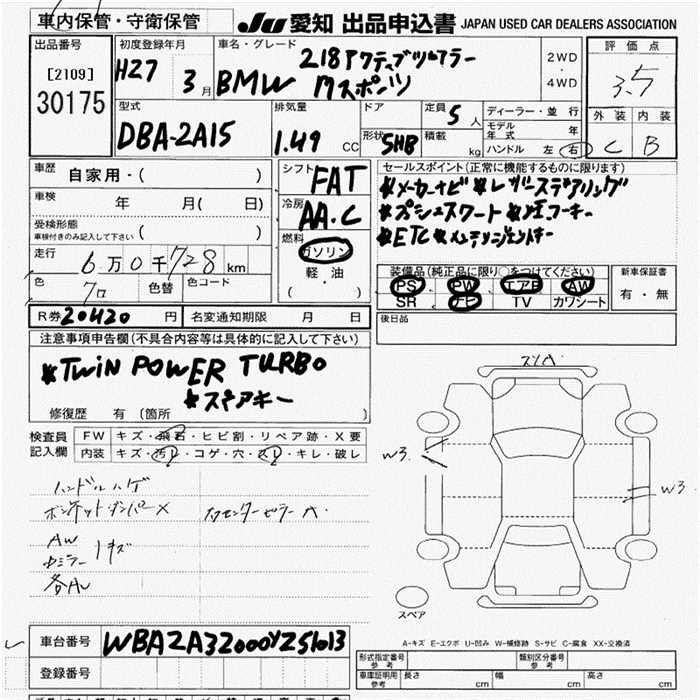 車内保管・守衛保管
JU 愛知 出品申込書 JAPAN USED CAR DEALERS ASSOCIATION
出品番号
[2109]
30175
初度登録年月
H27 3月
車名・グレード
218アクティブツアラー
BMW Mスポーツ
2WD
・
4WD
評価点
3.5
外装 内装
C B
型式
DBA-2A15
排気量
1.49 CC
ドア
形状 5HB
定員 5 人
積載 kg
ディーラー・並行
モデル年式 年
ハンドル 左 右
車歴 自家用・( )
車検 年 月( 日)
受検形態
車検付きのみ記入して下さい ( )
走行 6万0千728 km
色 クロ 色替 色コード
シフト FAT
冷房 AA.C
燃料
ガソリン
軽・油
( )
セールスポイント(正常に機能するものに限ります)
*メーカーナビ *レザーステアリング
*プッシュスタート
*ETC *インテリジェントキー
装備品(純正品に限り○をつけてください)
PS PW エアB AW
SR ナビ TV カワシート
新車保証書
有・無
R券 20420 円 名変通知期限 月 日
後日品
注意事項申告欄(不具合内容等は具体的に記入して下さい)
*TWIN POWER TURBO
*スペアキー
修復歴 有(箇所 )
検査員記入欄
FW キズ・飛石・ヒビ割・リペア跡・X要
内装 キズ・汚レ・コゲ・穴・スレ・キレ・破レ
ハンドルハゲ
ボンネットダンパーX
AW
キズ
各AU
W3
W3
スペア
A-キズ E-エクボ U-凹み W-補修跡 S-サビ C-腐食 XX-交換済
車台番号 WBA2A32000VZ51013
登録番号
形式指定番号 参考
類別区分番号 参考
車庫証明用 参考 長さ cm 幅 cm 高さ cm